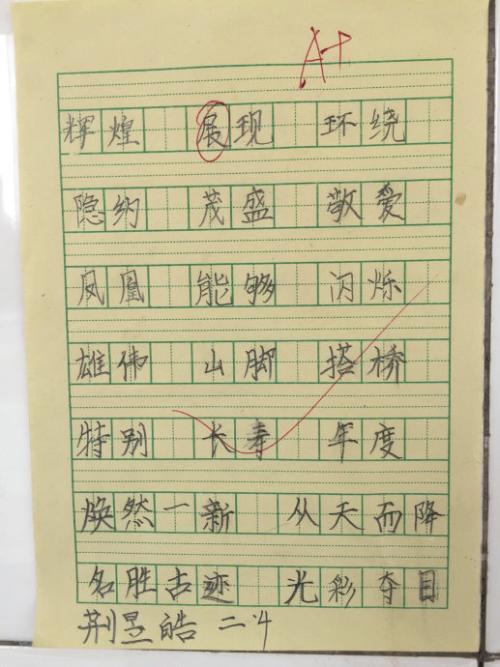 A+
辉煌 展现 环绕
隐纳 茂盛 敬爱
凤凰 能够 闪烁
雄伟 山脚 搭桥
特别 长寿 年度
焕然一新 从天而降
名胜古迹 光彩夺目
荆昱皓 二4